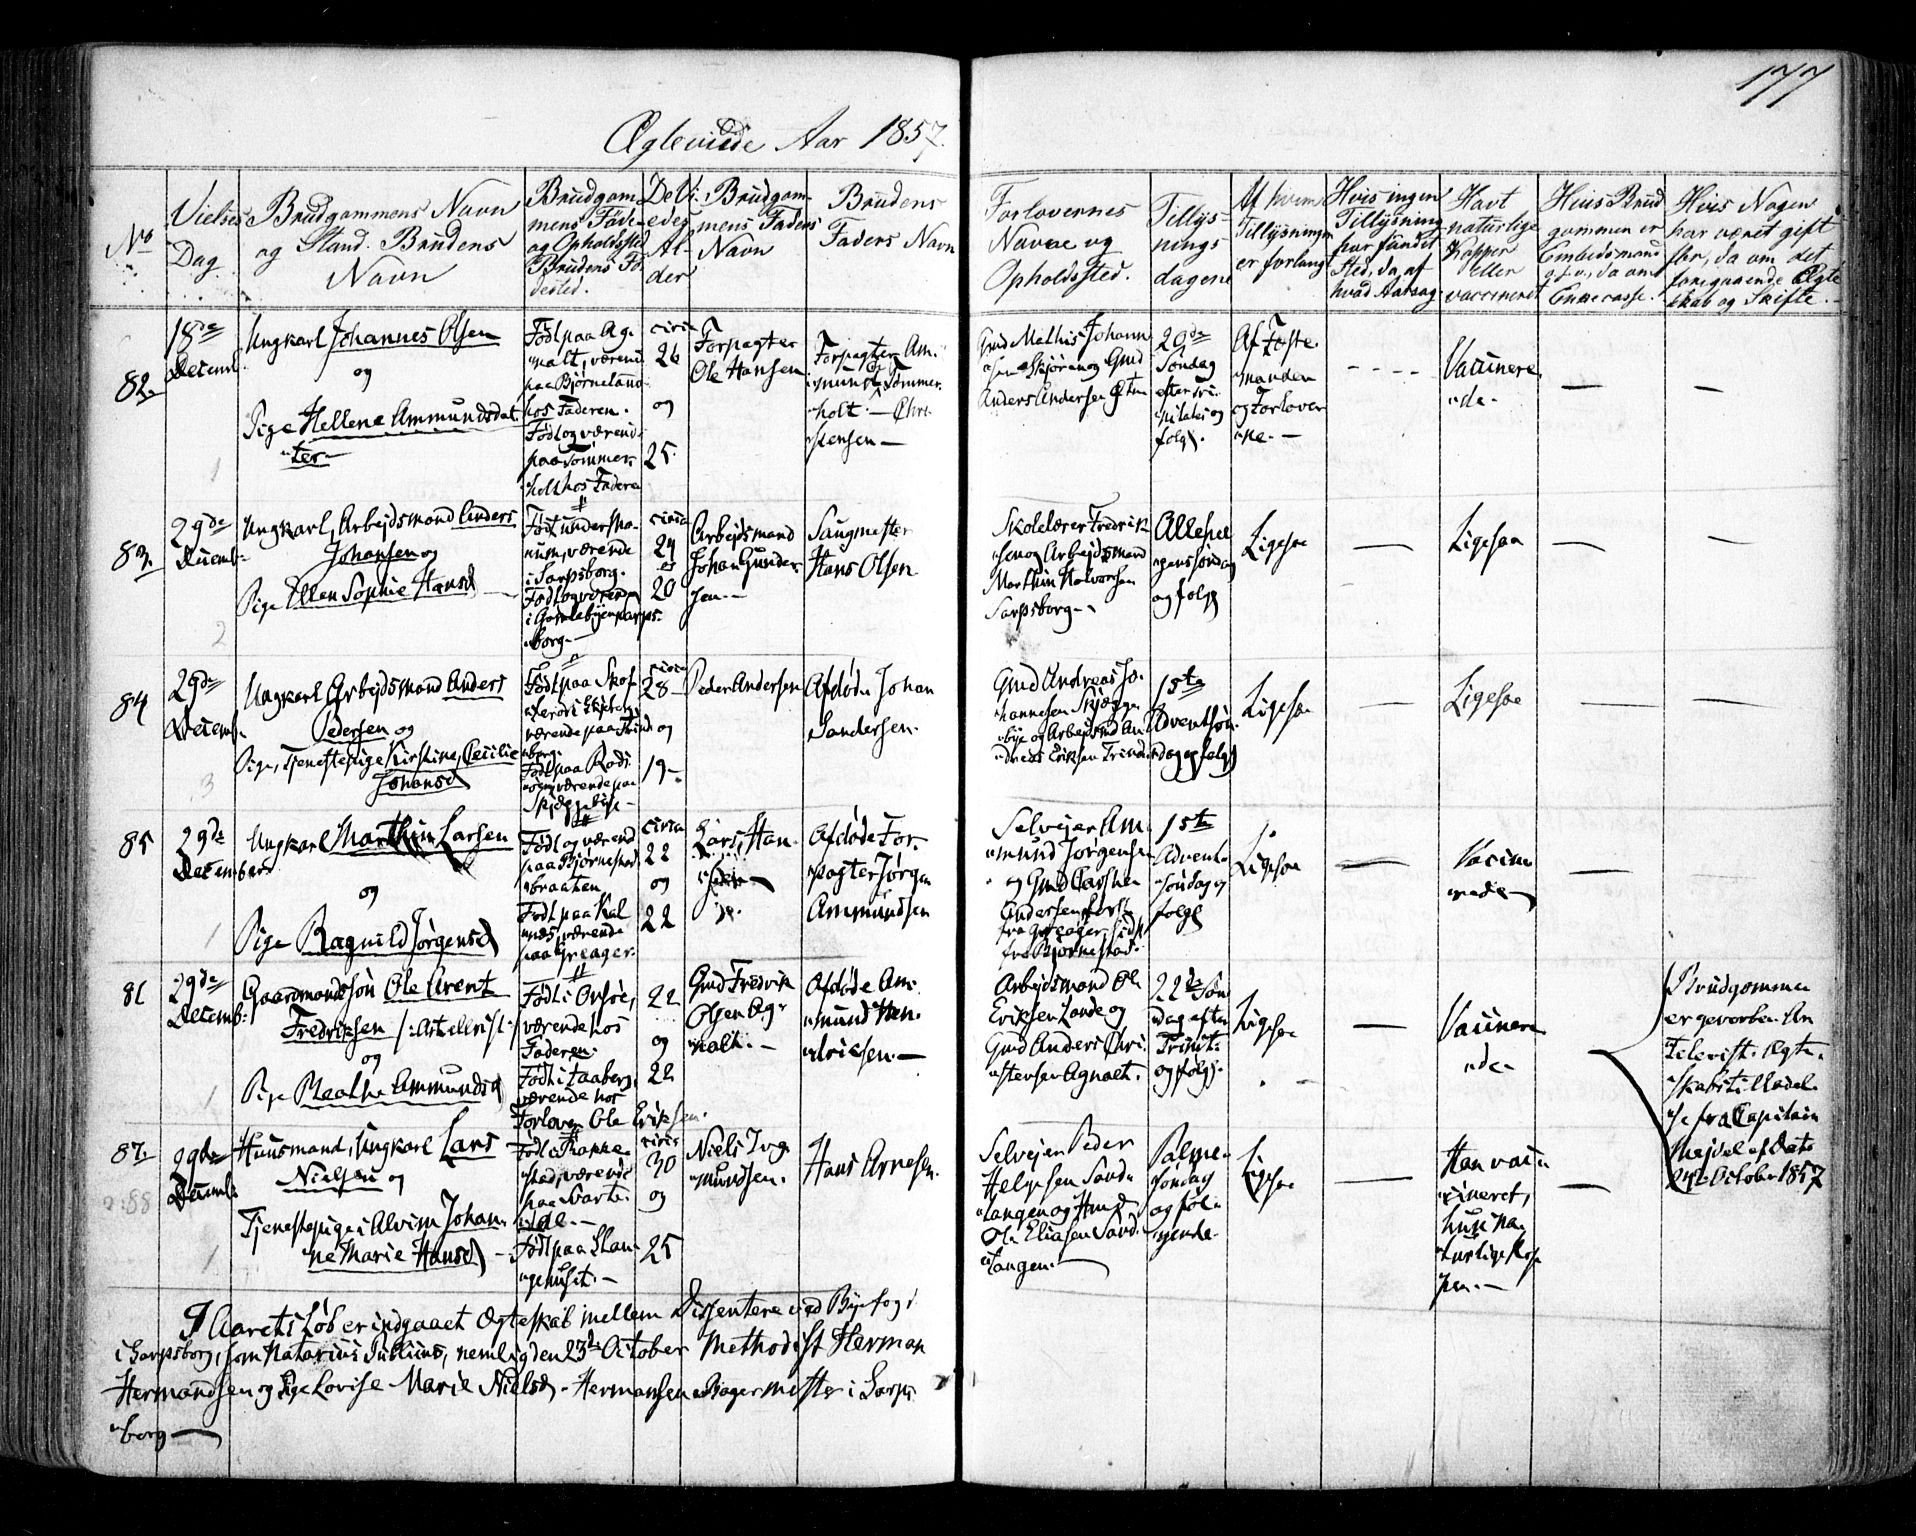 177
Ægteviede Aar 1857.
No
Vielses
Dag
Brudgommens Navn
og Stand. Brudens
Navn
Brudgom-
mens Føde-
og Opholdssted
Brudens Fø-
dested.
De Vi-
edes
Al-
der
Brudgom-
mens Faders
Navn
Brudens
Faders Navn
Forlovernes
Navne og
Opholdssted.
Tillys-
nings
dagene
Af hvem
Tillysningen
er forlangt
Hvis ingen
Tillysning
har fundet
Sted, da af
hvad Aarsag
Havt
naturlige
Kopper
eller
vaccineret
Hvis Brud
gommen er
Embedsmand
o.s.v., da om
Enkecasse.
Hvis Nogen
har været gift
før, da om det
foregaaende Ægte
skab og Skifte.
82.
18de
Decemb.
Ungkarl Johannes Olsen
og
Pige Hellene Ammundsdat
ter
Født paa Ag-
nalt, værend
paa Bjørneland
hos Faderen.
Født og værend
paa Tømmer
holt hos Faderen
circa
26
og
25.
Forpagter
Ole Hansen
Forpagter Am-
mund Tømmer-
holt - Chri-
stensen
Grd Mathis Johann
sen Skjøren og Grd
Anders Andersen
29de
Søndag
efter Tri-
nitatis og
følg.
Af Fæste
manden
og Forlover
ne.
- - - -
Vaccinere
de
—
—
1
83.
29de
Decemb.
Ungkarl, Arbejdsmand Anders
Johansen og
Pige Ellen Sophie Hansd
Født under Sko-
num, værende
i Sarpsborg.
Født og værende
i Gamlebyen Sarps-
borg.
circa
24
20
Arbejdsmand
Johan Gunder-
sen
Saugmester
Hans Olsen
Skolelærer Fredrik
sen og Arbejdsmand
Marthin Halvorsen
Sarpsborg
Allehel
gens søndag
og følg
Ligesaa
—
Ligesaa
—
—
2
84
29de
Decemb.
Ungkarl Arbejdsmand Anders
Pedersen og
Pige, Tjenestepige Kirstine, Cecilie
Johansd
Født paa Skof-
værende paa Trind
borg.
Født paa Rods
værende paa
Skjæggebye
circa
28
og
19
Peder Andersen
Afdøde Johan
Sandersen
Grd Andreas Jo-
hannesen Skjægge
bye og Arbejdsmd An-
dreas Eriksen Trind
1ste
Adventsøn
dag og følg
Ligesaa
—
Ligesaa
—
—
3
85
29de
December
Ungkarl Marthin Larsen
og
Pige Ragnild Jørgensd
Født og værend
paa Bjørnestad
braaten
Født paa Kal
næs, værende
paa Greager.
circa
22
og
22
Lars Han-
sen
Afdøde For-
pagter Jørgen
Ammundsen
Selvejer Am-
mund Jørgensen
og Grd
Andersen
fra Greager, sidst
fra Bjørnestad.
1ste
Advent
søndag og
følg
Ligesaa
—
Vaccine
rede
—
—
1
86
29de
Decemb:
Gaardmandssøn Ole Arent
Fredriksen /:Artellerist:/
og
Pige Maathe Ammundsd
Født i Onsøe,
værende hos
Faderen.
Født i Taaberg,
værende hos
Forlover Ole Eriksen.
22
og
22
Grd Fredrik
Olsen Ag-
nalt.
Afdøde Am-
mund Hen-
driksen.
Arbejdsmand Ole
Eriksen Lande og
Grd Anders Chri-
stensen Agnalt.
22de Søn
dag efter
Trinit.
og følg.
Ligesaa
—
Vaccinere
de
Brudgommen
er geverben Ar
tellerist. Ægte-
skabstilladel
se fra Capitain
Mejdel af Dato
24de October 1857
1
87.
29de
Decemb:
Huusmand, Ungkarl Lars
Nielsen og
Tjenestepige i Alvim Johan-
ne Marie Hansd
Født i Rakke-
stad, værende
paa Svarte-
dal.
Født paa Stan-
gehuset.
circa
30
og
25
Niels Ing-
mundsen.
Hans Arnesen.
Selvejer Peder
Helgesen Sand-
tangen og Hmd
Ole Eliasen Sand-
tangen.
Palme-
søndag
og føl-
gende
Ligesaa
—
Han vac-
cineret,
hun na-
turlige Kop
per.
—
1
I Aarets Løb er indgaaet Ægteskab mellem Dissentere ved Byefogd
i Sarpsborg, som Notarius Publicus, nemlig den 23de October Methodist Herman
Hermandsen og Pige Lovise Marie Nielsd - Hermansen er Bagermester i Sarps
borg